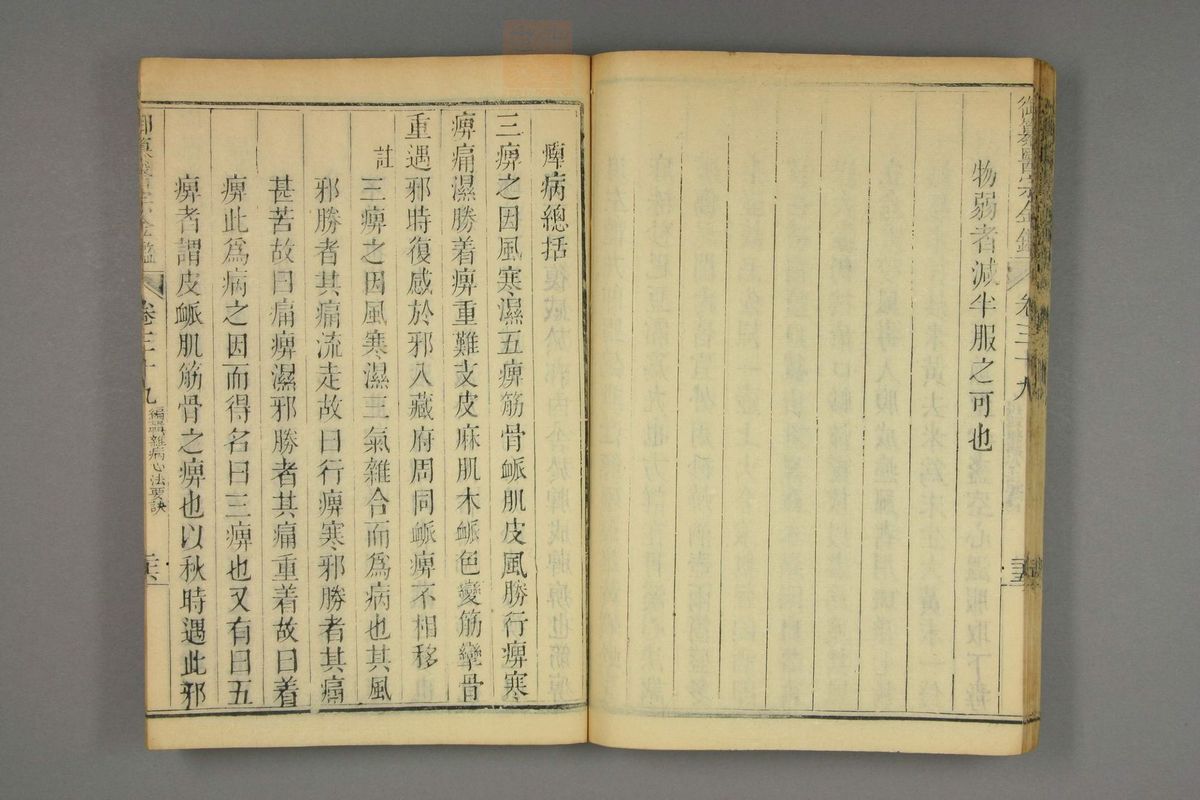 御纂醫宗金鑑 卷三十九
物弱者減半服之可也
痺病總括
三痹之因風寒濕五痹筋骨衇肌皮風勝行痹寒
痹痛濕勝着痹重難支皮麻肌木衇色變筋攣骨
重遇邪時復感於邪入藏府周同衇痹不相移
註 三痹之因風寒濕三氣雜合而爲病也其風
邪勝者其痛流走故曰行痹寒邪勝者其痛
甚苦故曰痛痹濕邪勝者其痛重着故曰着
痹此爲病之因而得名曰三痹也又有曰五
痹者謂皮衇肌筋骨之痹也以秋時遇此邪
御纂醫宗金鑑 卷三十九 編輯雜病心法要訣 二六